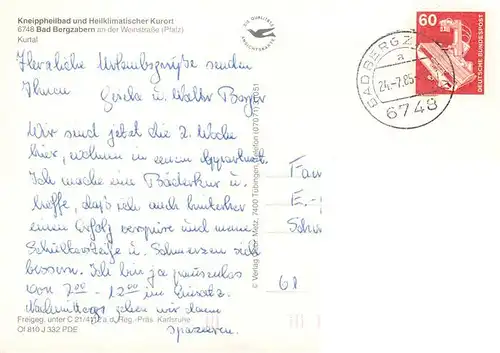 Kneippheilbad und Heilklimatischer Kurort
6748 Bad Bergzabern an der Weinstraße (Pfalz)
Kurtal
DIE QUALITÄTS
ANSICHTSKARTE
60
DEUTSCHE BUNDESPOST
BAD BERGZ
a
24.-7.85
6748
Herzliche Urlaubsgrüße senden
Ihnen Gerda u. Walter
Wir sind jetzt die 2. Woche
hier, wohnen in einem Appartment.
Ich mache eine Bäderkur u.
hoffe, daß ich auch hinterher
einen Erfolg verspüre und meine
Schultersteife u. Schmerzen sich
bessern. Ich bin ja pausenlos
von 7.00 - 12.00 im Einsatz.
Nachmittags gehen wir dann
spazieren.
Fam
E.
Sch
61
© Verlag Metz, 7400 Tübingen, Telefon (07071)
Freigeg. unter C 21/4112 a. d. Reg.-Präs. Karlsruhe
Ol 810 J 332 PDE